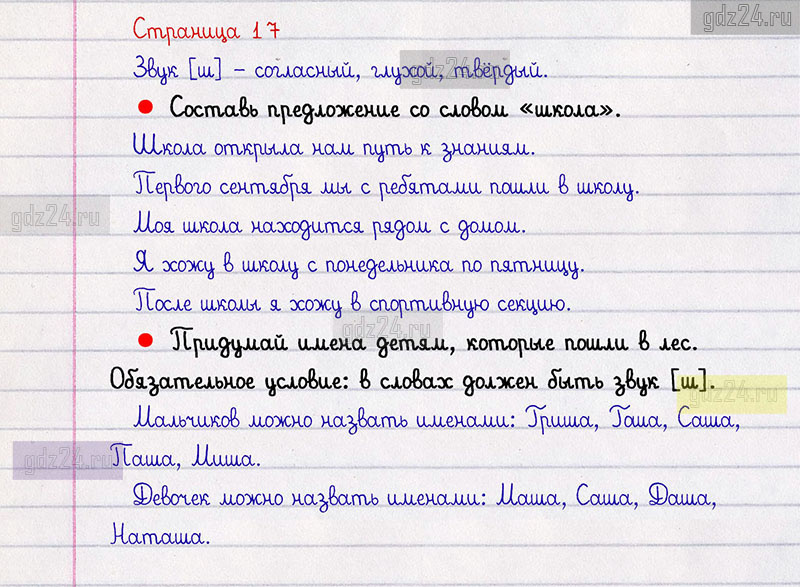 gdz24.ru
Страница 17
Звук [ш] – согласный, глухой, твёрдый.
gdz24.ru
● Составь предложение со словом «школа».
Школа открыла нам путь к знаниям.
Первого сентября мы с ребятами пошли в школу.
gdz24.ru
Моя школа находится рядом с домом.
Я хожу в школу с понедельника по пятницу.
После школы я хожу в спортивную секцию.
gdz24.ru
● Придумай имена детям, которые пошли в лес.
Обязательное условие: в словах должен быть звук [ш].
gdz24.ru
Мальчиков можно назвать именами: Гриша, Гоша, Саша,
Паша, Миша.
gdz24.ru
Девочек можно назвать именами: Маша, Саша, Даша,
Наташа.